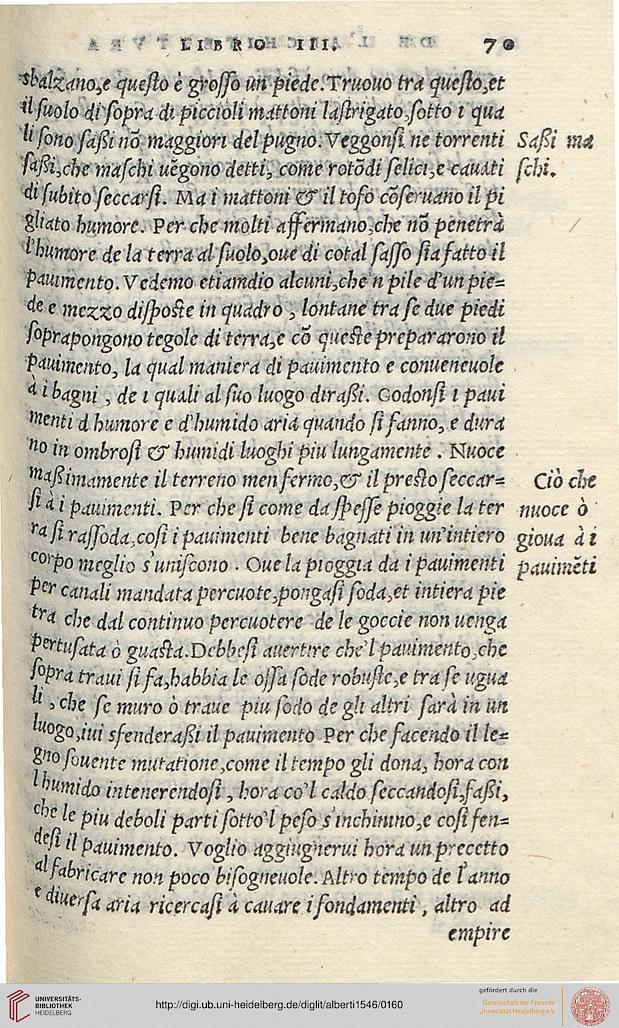 LIBRO III. 70
sbalzano,e questo è grosso un piede.Truouo tra questo,et
il suolo di sopra di piccioli mattoni lastrigato,sotto i qua
li sono saßi nõ maggiori del pugno. Veggonsi ne torrenti
saßi,che maschi uẽgono detti, come rotõdi selici,e cauati
di subito seccarsi. Ma i mattoni & il tofo cõseruano il pi
gliato humore. Per che molti affermano,che nõ penetrà
l'humore de la terra al suolo,oue di cotal sasso sia fatto il
pauimento. Vedemo etiamdio alcuni,che'n pile d'un pie=
de e mezzo disposte in quadro , lontane tra se due piedi
soprapongono tegole di terra,e cõ queste prepararono il
pauimento, la qual maniera di pauimento e conueneuole
à i bagni , de i quali al suo luogo diraßi. Godonsi i paui
menti d humore e d'humido aria quando si fanno, e dura
no in ombrosi & humidi luoghi piu lungamente . Nuoce
maßimamente il terreno men fermo,& il presto seccar=
si à i pauimenti. Per che si come da spesse pioggie la ter
ra si rassoda,cosi i pauimenti bene bagnati in un'intiero
corpo meglio s'uniscono . Oue la pioggia da i pauimenti
per canali mandata percuote,pongasi soda,et intiera pie
tra che dal continuo percuotere de le goccie non uenga
pertusata ò guasta.Debbesi auertire che'l pauimento,che
sopra traui si fa,habbia le ossa sode robuste,e tra se ugua
li , che se muro ò traue piu sodo de gli altri sarà in un
luogo,iui sfenderaßi il pauimento Per che facendo il le=
gno souente mutatione,come il tempo gli dona, hora con
l humido intenerendosi , hora co'l caldo seccandosi,faßi,
che le piu deboli parti sotto'l peso s'inchinino,e cosi fen=
desi il pauimento. Voglio aggiugnerui hora un precetto
al fabricare non poco bisogneuole. Altro tempo de l'anno
e diuersa aria ricercasi à cauare i fondamenti , altro ad
empire
Saßi ma
schi.
Ciò che
nuoce ò
gioua à i
pauimẽti
UNIVERSITÄTS-
BIBLIOTHEK
HEIDELBERG
http://digi.ub.uni-heidelberg.de/diglit/alberti1546/0160
gefördert durch die
Gesellschaft der Freunde
Universität Heidelberg e.V.